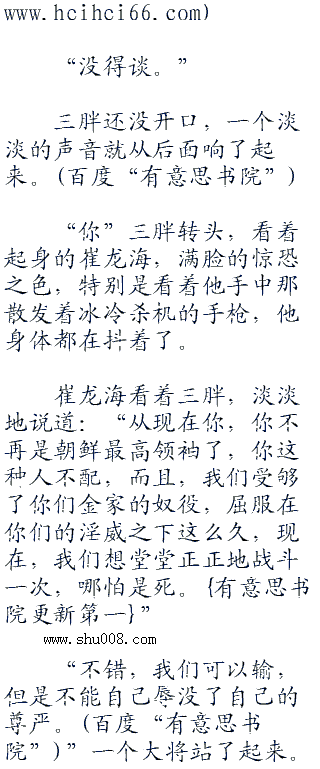 www.hcihci66.com)
“没得谈。”
三胖还没开口，一个淡
淡的声音就从后面响了起
来。(百度“有意思书院”)
“你”三胖转头，看着
起身的崔龙海，满脸的惊恐
之色，特别是看着他手中那
散发着冰冷杀机的手枪，他
身体都在抖着了。
崔龙海看着三胖，淡淡
地说道：“从现在你，你不
再是朝鲜最高领袖了，你这
种人不配，而且，我们受够
了你们金家的奴役，屈服在
你们的淫威之下这么久，现
在，我们想堂堂正正地战斗
一次，哪怕是死。{有意思书
院更新第一}”
www.shu008.com
“不错，我们可以输，
但是不能自己辱没了自己的
尊严。(百度“有意思书
院”)”一个大将站了起来。